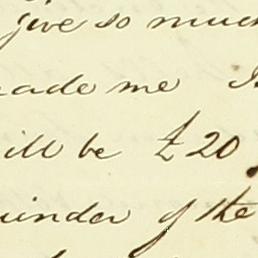 give so much
made me
will be £20
uinder of the